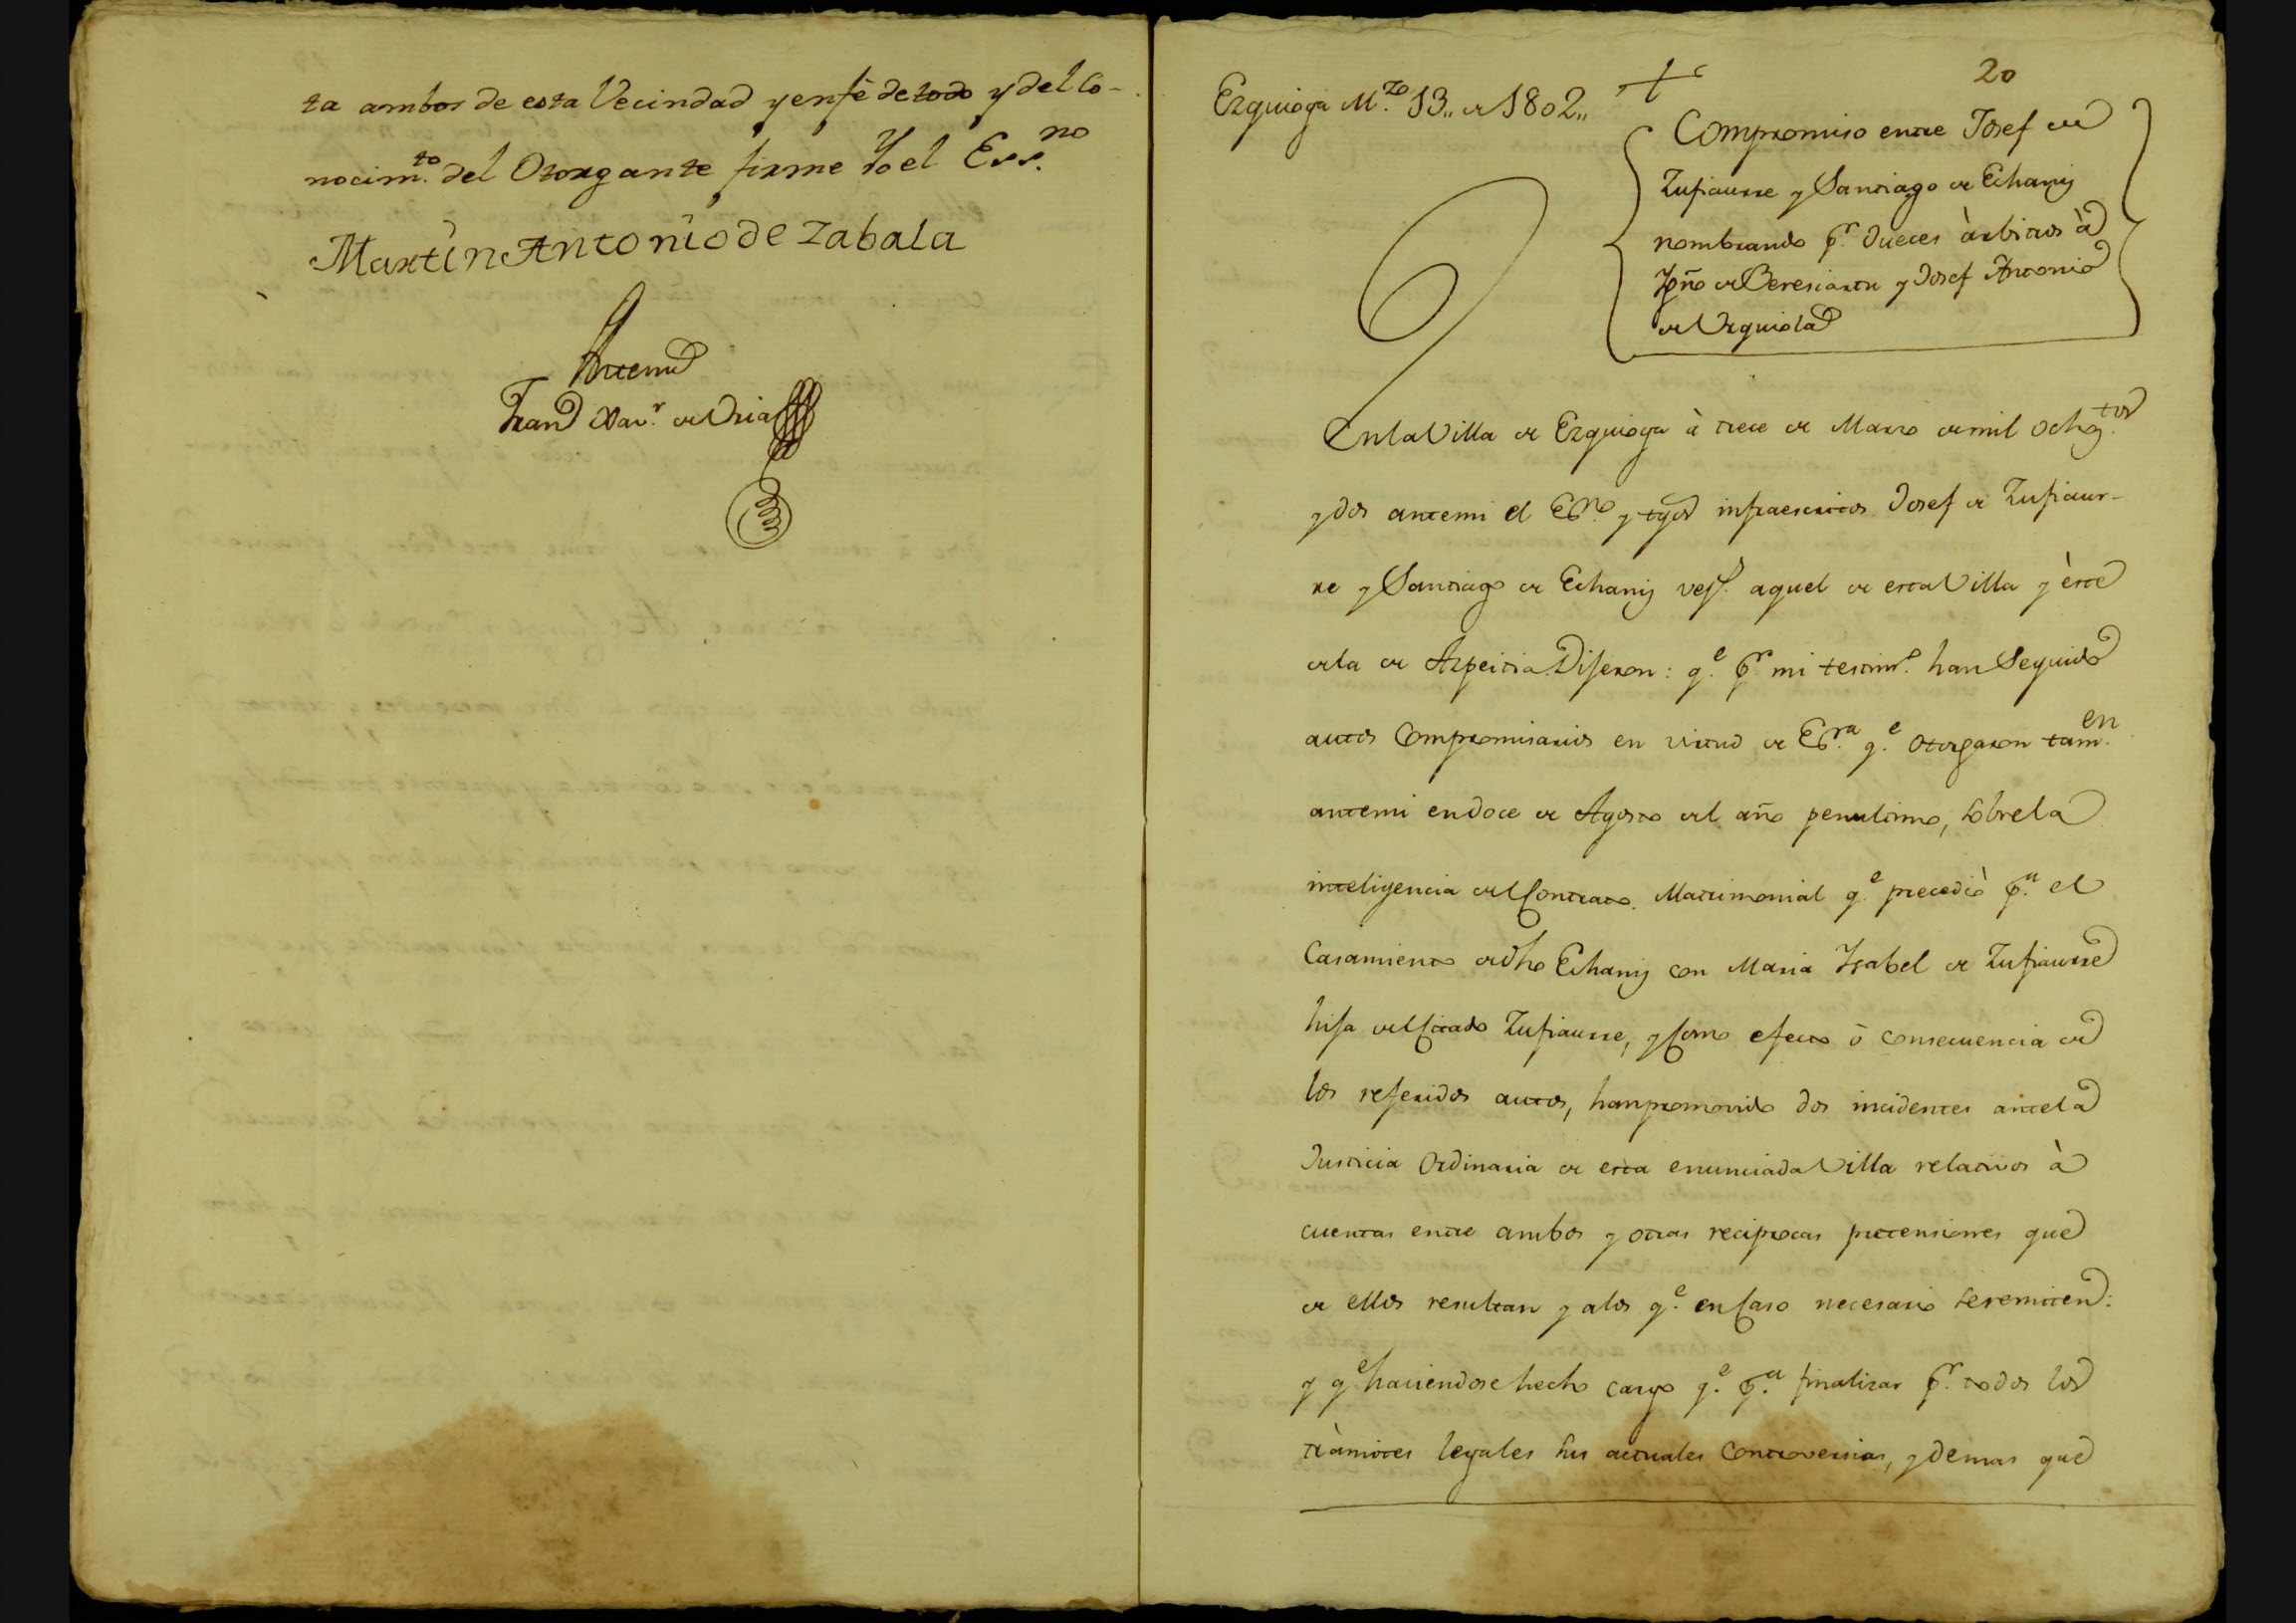 ta ambos de esta Vecindad y en fé de todo y del Co-
nocim.to del Otorgante firme Yo el Ess.no
Martin Antonio de Zabala
Antemi
Fran.co Xav.r de Uria
Ezquioga M.zo 13,, de 1802,,
20
Compromiso entre Josef de
Zufiaurre y Santiago de Echaniz
nombrando p.r Jueces àrbitros à
Yg.no de Beresiartu y Josef Antonio
de Urquiola
En la Villa de Ezquioga à trece de Marzo de mil ochoz.tos
y dos antemi el Es.no y tgos infraescritos Josef de Zufiaur-
re y Santiago de Echaniz vezs. aquel de esta Villa y èste
de la de Azpeitia Dijeron: q.e p.r mi testim.o han Seguido
autos Compromisarios en virtud de Es.ra q.e otorgaron tam.en
antemi en doce de Agosto del año penultimo, sobre la
inteligencia del Contrato Matrimonial q.e precediò p.a el
Casamiento de dho Echaniz con Maria Ysabel de Zufiaurre
hija del Citado Zufiaurre, y Como efecto ò consecuencia de
los referidos autos, han promovido dos incidentes ante la
Justicia Ordinaria de esta enunciada Villa relativos à
cuentas entre ambos y otras reciprocas pretensiones que
de ellos resultan y a los q.e en Caso necesario se remiten:
y q.e haviendose hecho cargo q.e p.a finalizar p.r todos los
tràmites legales sus actuales Controversias, y demas que